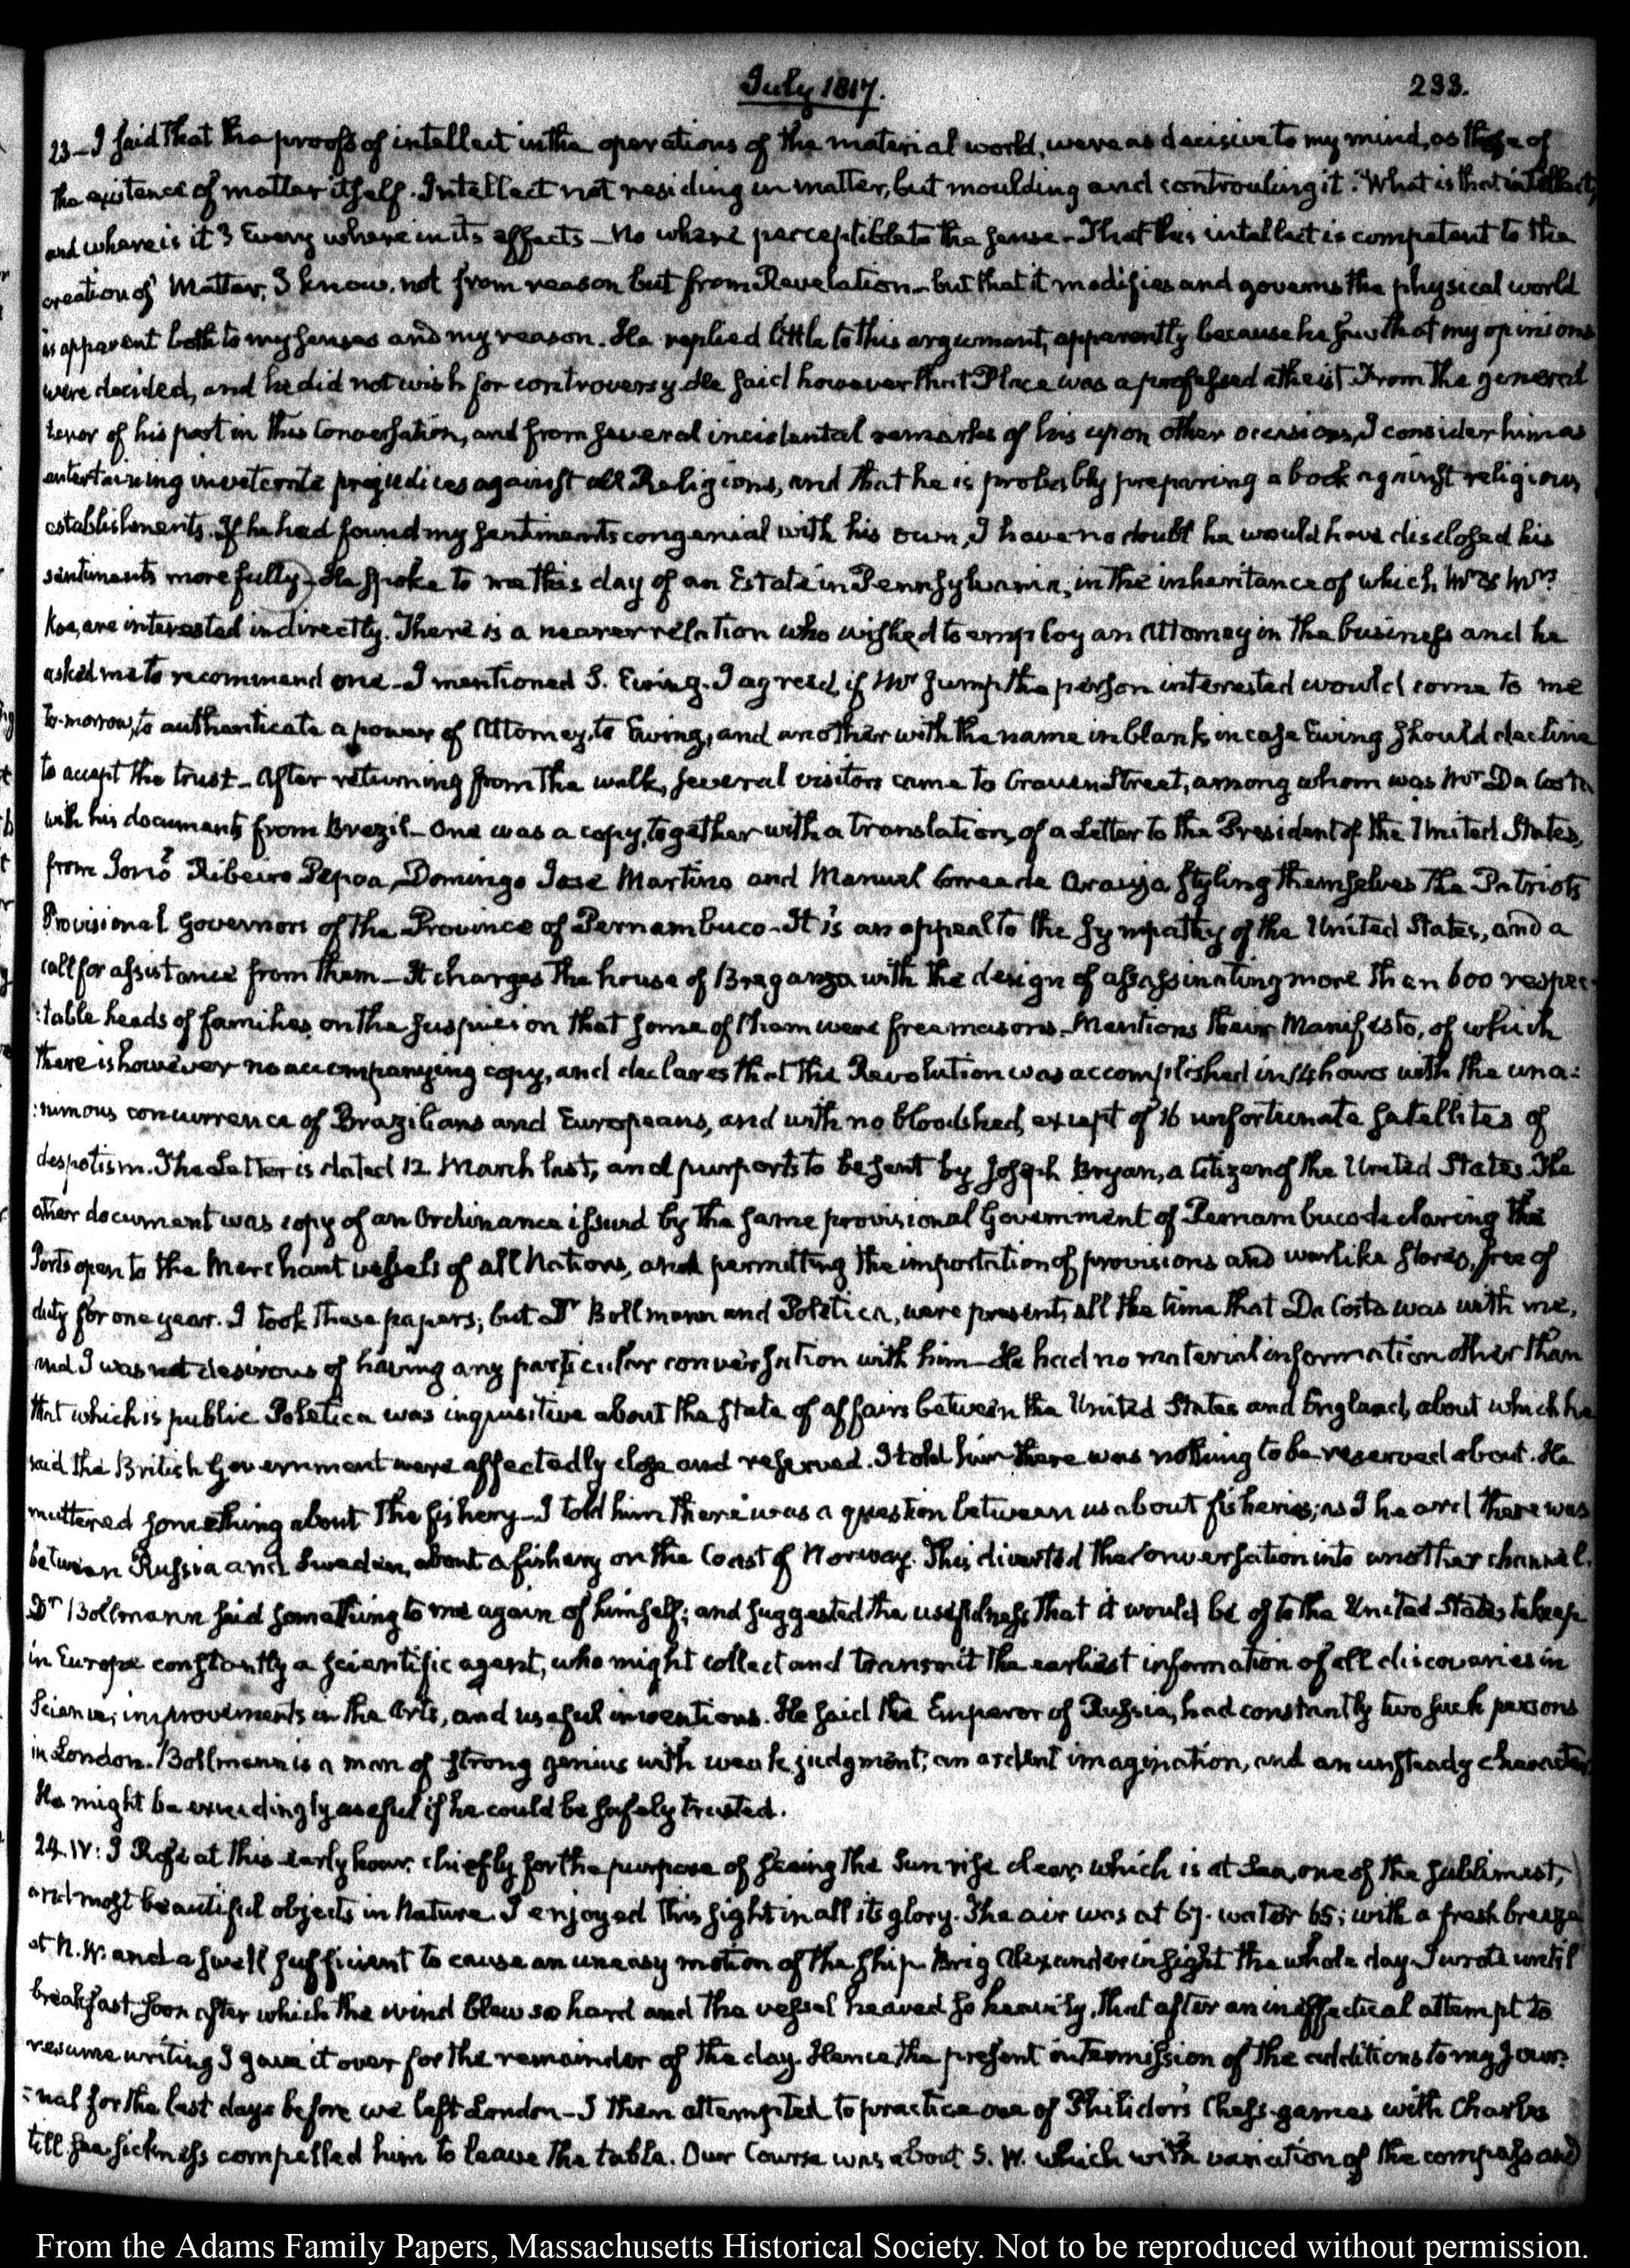 July 1817.
233.
23 – I said that the proofs of intellect in the operations of the material world, were as decisive to my mind, as those of
the existence of matter itself. Intellect not residing in matter, but moulding and controuling it. What is that intellect,
and where is it? Every where in its effects – No where perceptible to the sense – That this intellect is competent to the
creation of Matter, I know, not from reason but from Revelation – but that it modifies and governs the physical world
is apparent both to my senses and my reason. He replied little to this argument, apparently because he saw that my opinions
were decided, and he did not wish for controversy. He said however that Place was a professed atheist. From the general
tenor of his part in this Conversation, and from several incidental remarks of his upon other occasions, I consider him as
entertaining inveterate prejudices against all Religions, and that he is probably preparing a book against religious
establishments. If he had found my sentiments congenial with his own, I have no doubt he would have disclosed his
sentiments more fully – He spoke to me this day of an Estate in Pennsylvania, in the inheritance of which, Mr & Mrs
Koe, are interested indirectly. There is a nearer relation who wished to employ an Attorney in the business and he
asked me to recommend one – I mentioned S. Ewing. I agreed, if Mr Jump the person interested would come to me
to-morrow, to authenticate a power of Attorney, to Ewing, and another with the name in blank, in case Ewing should decline
to accept the trust – After returning from the walk, several visitors came to Craven Street, among whom was Mr Da Costa
with his documents from Brazil – One was a copy, together with a translation, of a Letter to the President of the United States,
from Ribeiro Pepoa, Domingo Jose Martins and Manuel Correa de Araujo, styling themselves the Patriots
Provisional Governors of the Province of Pernambuco – It is an appeal to the sympathy of the United States, and a
call for assistance from them – It charges the house of Braganza with the design of assassinating more than 600 respec-
:table heads of families, on the suspicion that some of them were free masons. Mentions their Manifesto, of which
there is however no accompanying copy, and declares that the Revolution was accomplished in 14 hours with the una:
:nimous concurrence of Brazilians and Europeans, and with no bloodshed, except of 16 unfortunate satellites of
despotism. The Letter is dated 12 March last, and purports to be sent by Joseph Bryan, a Citizen of the United States. The
other document was copy of an Ordinance issued by the same provisional Government of Pernambuco declaring the
Ports open to the Merchant vessels of all Nations, and permitting the importation of provisions and warlike stores, free of
duty for one year. I took these papers; but Dr Bollmann and Poletica, were present, all the time that Da Costa was with me,
and I was not desirous of having any particular conversation with him – He had no material information other than
that which is public. Poletica was inquisitive about the state of affairs between the United States and England, about which he
said the British Government were affectedly close and reserved. I told him there was nothing to be reserved about. He
muttered something about the fishery – I told him there was a question between us about fisheries; as I heard there was
between Russia and Sweden, about a fishery on the Coast of Norway. This diverted the Conversation into another channel.
Dr Bollmann said something to me again of himself; and suggested the usefulness that it would be of to the United States, to keep
in Europe constantly a scientific agent, who might collect and transmit the earliest information of all discoveries in
Science, improvements in the Arts, and useful inventions. He said the Emperor of Russia, had constantly two such persons
in London. Bollmann is a man of strong genius with weak judgment; an ardent imagination, and an unsteady character.
He might be exceedingly useful if he could be safely trusted.
24. IV: I Rose at this early hour, chiefly for the purpose of seeing the Sun rise clear, which is at Sea, one of the sublimest,
and most beautiful objects in Nature. I enjoyed this sight in all its glory. The air was at 67. water 65; with a fresh breeze
at N.W. and a swell sufficient to cause an uneasy motion of the ship. Brig Alexander in sight the whole day. I wrote until
breakfast. Soon after which the wind blew so hard and the vessel heaved so heavily, that after an ineffectual attempt to
resume writing I gave it over for the remainder of the day. Hence, the present intermission of the additions to my Jour:
:nal for the last days before we left London – I then attempted to practice one of Philidor's Chess-games with Charles
till sea-sickness compelled him to leave the table. Our Course was about S. W. which with variation of the compass and
From the Adams Family Papers, Massachusetts Historical Society. Not to be reproduced without permission.